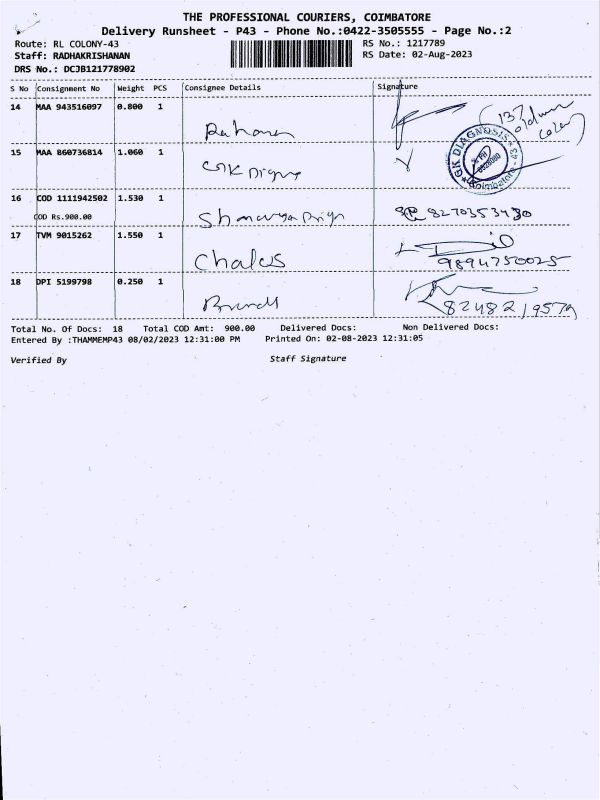 THE PROFESSIONAL COURIERS, COIMBATORE
Delivery Runsheet - P43 - Phone No.:0422-3505555 - Page No.:2
Route: RL COLONY-43 RS No.: 1217789
Staff: RADHAKRISHANAN RS Date: 02-Aug-2023
DRS No.: DCJB121778902
S No Consignment No Weight PCS Consignee Details Signature
14 MAA 943516097 0.800 1
15 MAA 860736814 1.060 1 GK
GK DIAGNOSIS
Coimbatore - 43
16 COD 1111942502 1.530 1
COD Rs.900.00 8270353430
17 TVM 9015262 1.550 1
9894750025
18 DPI 5199798 0.250 1
Total No. Of Docs: 18 Total COD Amt: 900.00 Delivered Docs: Non Delivered Docs:
Entered By :THAMMEMP43 08/02/2023 12:31:00 PM Printed On: 02-08-2023 12:31:05
Verified By Staff Signature